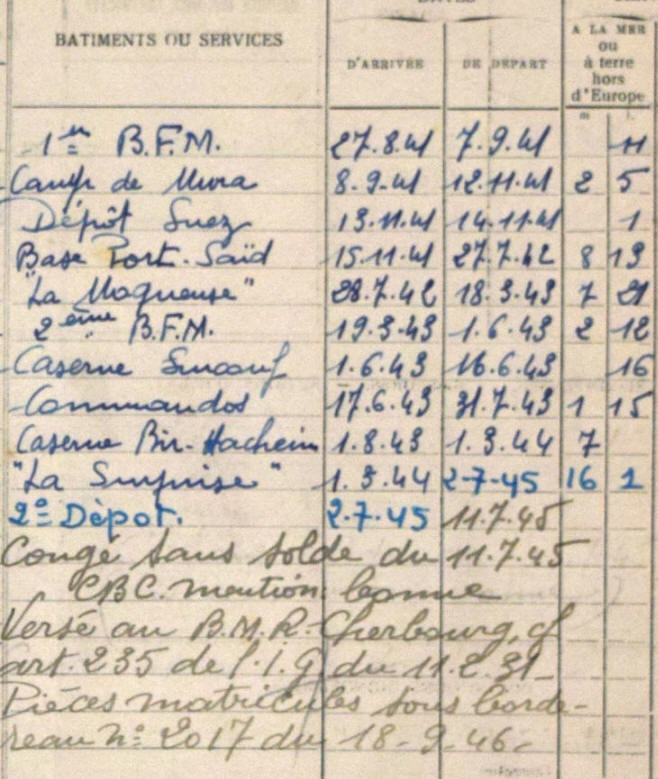 BATIMENTS OU SERVICES D'ARRIVÉE DE DÉPART A LA MER ou à terre hors d'Europe
m j.
1er B.F.M. 27.8.41 7.9.41 11
Camp de Mora 8.9.41 12.11.41 2 5
Dépôt Suez 13.11.41 14.11.41 1
Base Port-Saïd 15.11.41 27.7.42 8 13
"La Moqueuse" 28.7.42 18.3.43 7 21
2ème B.F.M. 19.3.43 1.6.43 2 12
Caserne Surcouf 1.6.43 16.6.43 16
Commandos 17.6.43 31.7.43 1 15
Caserne Bir-Hacheim 1.8.43 1.3.44 7
"La Surprise" 1.3.44 2-7-45 16 1
2e Dépot. 2.7.45 11.7.45
Congé sans solde du 11.7.45
CBC. mention: bonne
Versé au B.M.R. Cherbourg, cf
art. 235 de l'.I.G du 11.2.31
Pièces matricules sous borde-
reau n° 2017 du 18-9.46.